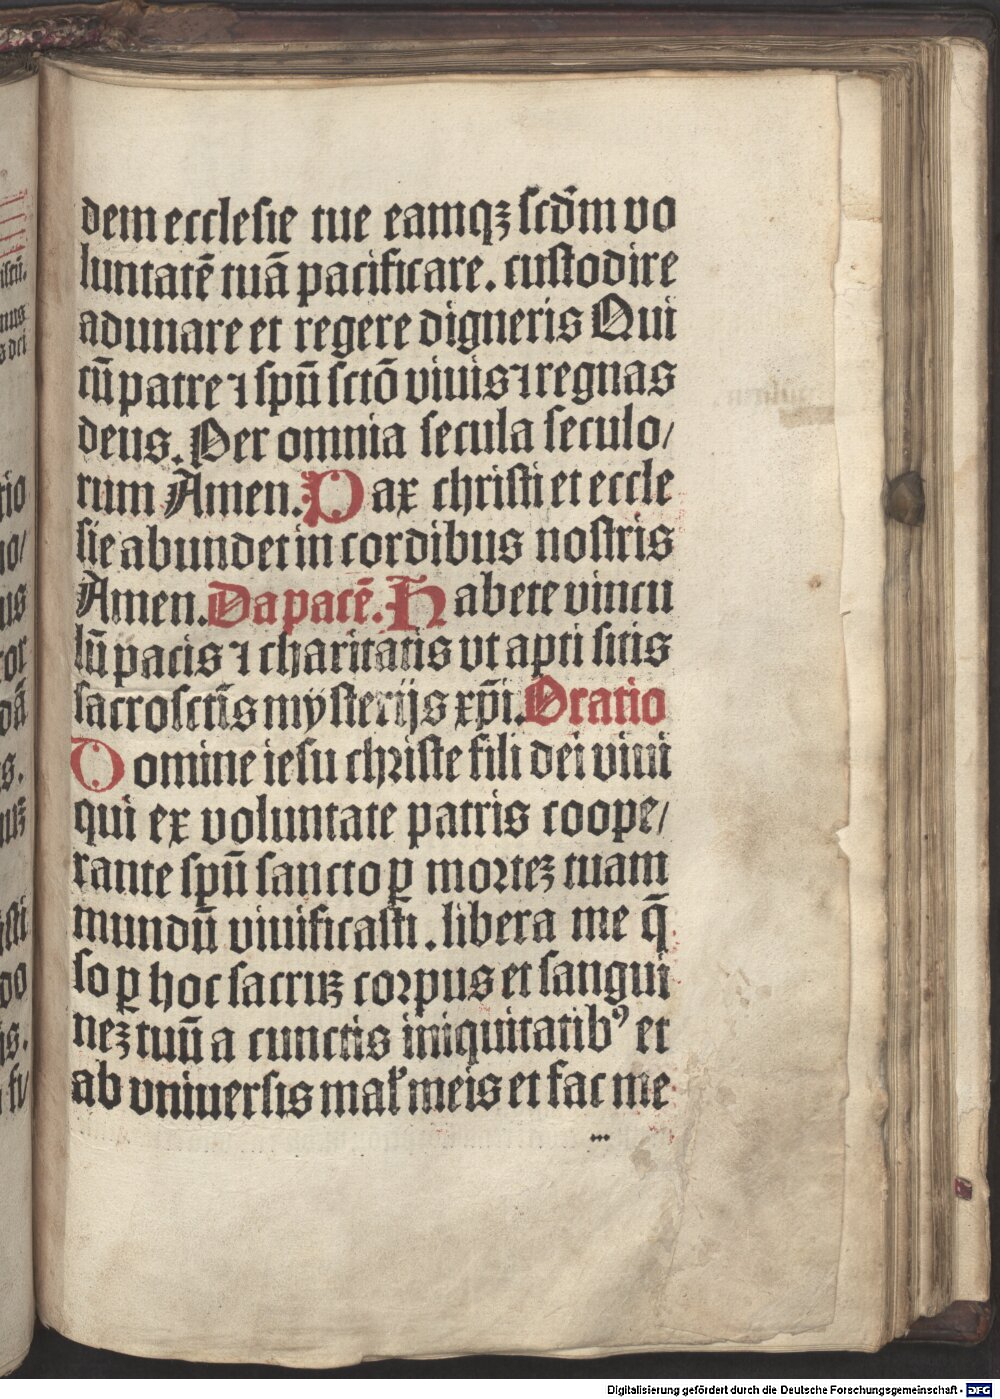 dem ecclesie tue eamqꝫ scďm vo
luntatē tuā pacificare. custodire
adunare et regere digneris Qui
cū patre ⁊ spū sctō viuis ⁊ regnas
deus. Per omnia secula seculo/
rum Amen. Pax christi et eccle
sie abundet in cordibus nostris
Amen. Da pacē. Habete vincu
lū pacis ⁊ charitatis vt apti sitis
sacrosctīs mysterijs xp̄i. Oratio
Domine iesu christe fili dei viui
qui ex voluntate patris coope/
rante spū sancto ꝑ morteꝫ tuam
mundū viuificasti. libera me q̄
so ꝑ hoc sacruꝫ corpus et sangui
neꝫ tuū a cunctis iniquitatibꝰ et
ab vniuersis mal' meis et fac me
Digitalisierung gefördert durch die Deutsche Forschungsgemeinschaft - DFG